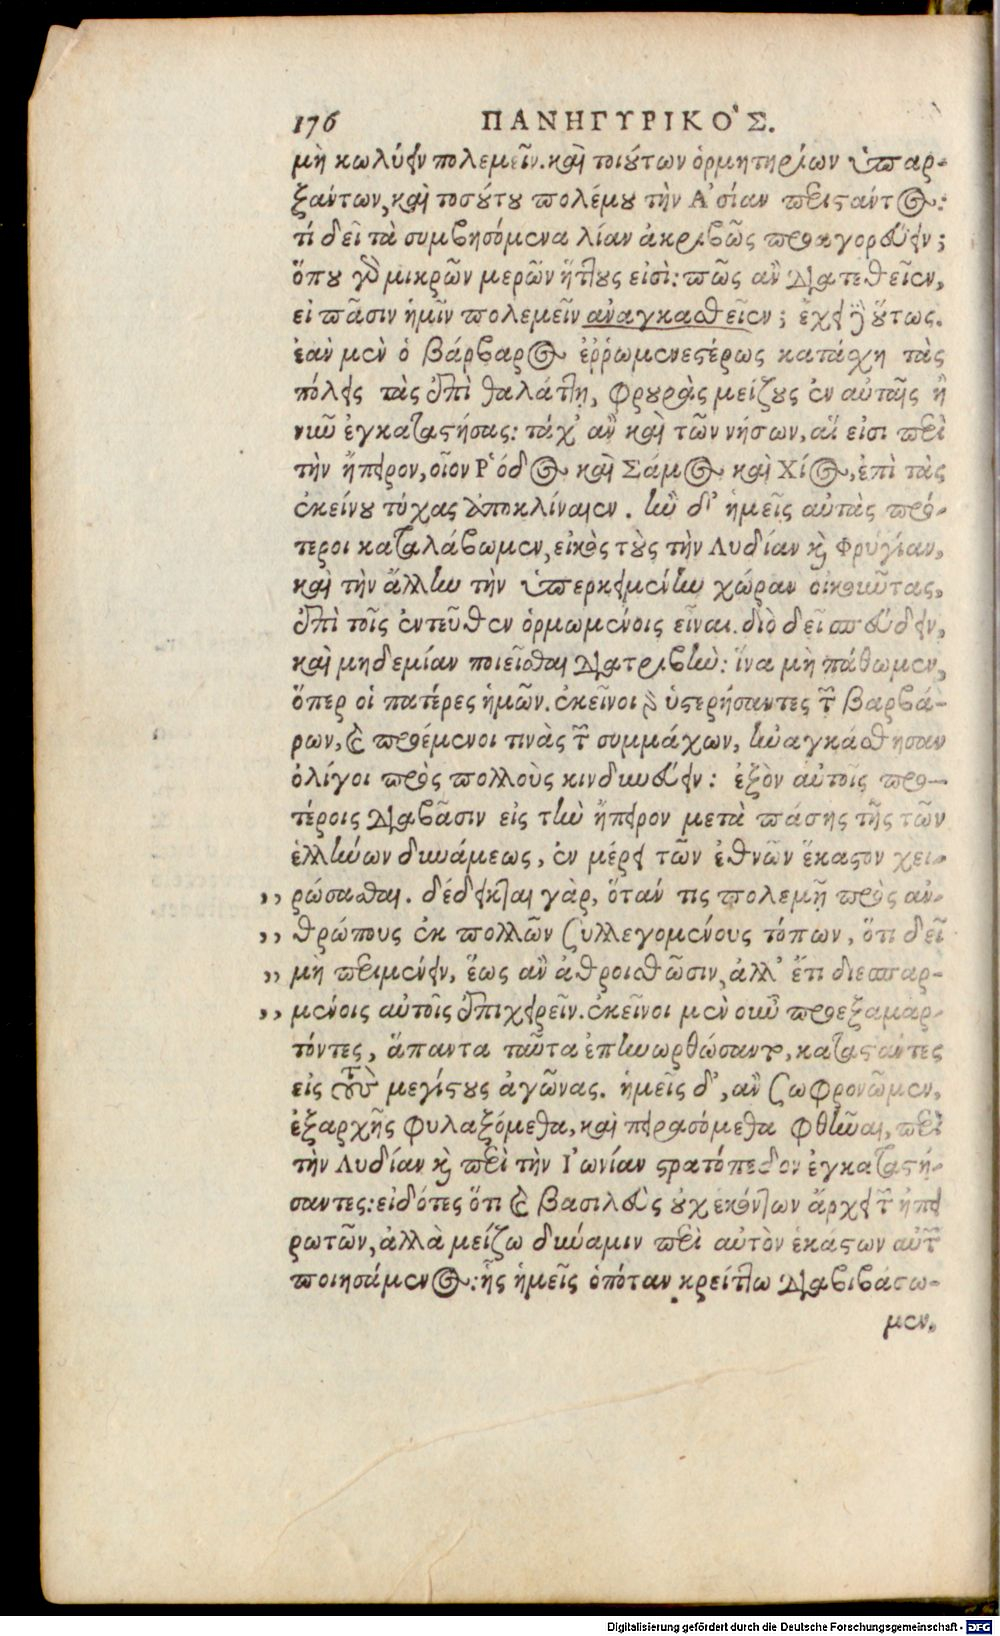 176 ΠΑΝΗΓΥΡΙΚΟ'Σ.
μὴ κωλύειν πολεμεῖν. καὶ τοιούτων ὁρμητηρίων ὑπαρ-
ξάντων, καὶ τοσούτου πολέμου τὴν Ἀσίαν περιστάντος:
τί δεῖ τὰ συμβησόμενα λίαν ἀκριβῶς προαγορεύειν;
ὅπου γὸ μικρῶν μερῶν ἥττους εἰσὶ: πῶς ἂν διατεθεῖεν,
εἰ πᾶσιν ἡμῖν πολεμεῖν ἀναγκασθεῖεν; ἔχει δὲ οὕτως.
ἐὰν μὲν ὁ βάρβαρος ἐρρωμενεστέρως κατάχῃ τὰς
πόλεις τὰς ἐπὶ θαλάττῃ, φρουρὰς μείζους ἐν αὐταῖς ἢ
νῦν ἐγκαταστήσας: τάχ' ἂν καὶ τῶν νήσων, αἵ εἰσι περὶ
τὴν ἤπειρον, οἷον Ῥόδος καὶ Σάμος καὶ Χίος, ἐπὶ τὰς
ἐκείνου τύχας ἀποκλίναιεν. ἢν δ' ἡμεῖς αὐτὰς πρό-
τεροι καταλάβωμεν, εἰκὸς τοὺς τὴν Λυδίαν καὶ Φρυγίαν,
καὶ τὴν ἄλλην τὴν ὑπερκειμένην χώραν οἰκοῦντας,
ἐπὶ τοῖς ἐντεῦθεν ὁρμωμένοις εἶναι. διὸ δεῖ σπεύδειν,
καὶ μηδεμίαν ποιεῖσθαι διατριβὴν: ἵνα μὴ πάθωμεν,
ὅπερ οἱ πατέρες ἡμῶν. ἐκεῖνοι δὲ ὑστερήσαντες τῶν βαρβά-
ρων, καὶ προέμενοι τινὰς τῶν συμμάχων, ἠναγκάσθησαν
ὀλίγοι πρὸς πολλοὺς κινδυνεύειν: ἐξὸν αὐτοῖς προ-
τέροις διαβᾶσιν εἰς τὴν ἤπειρον μετὰ πάσης τῆς τῶν
ἑλλήνων δυνάμεως, ἐν μέρει τῶν ἐθνῶν ἕκαστον χει-
,, ρώσασθαι. δέδεικται γὰρ, ὅταν τις πολεμῇ πρὸς ἀν-
,, θρώπους ἐκ πολλῶν συλλεγομένους τόπων, ὅτι δεῖ
,, μὴ περιμένειν, ἕως ἂν ἀθροισθῶσιν, ἀλλ' ἔτι διεσπαρ-
,, μένοις αὐτοῖς ἐπιχειρεῖν. ἐκεῖνοι μὲν οὖν προεξαμαρ-
τόντες, ἅπαντα ταῦτα ἐπηνωρθώσαντο, καταστάντες
εἰς τοὺς μεγίστους ἀγῶνας. ἡμεῖς δ', ἂν σωφρονῶμεν,
ἐξαρχῆς φυλαξόμεθα, καὶ πειρασόμεθα φθῆναι, περὶ
τὴν Λυδίαν καὶ περὶ τὴν Ἰωνίαν στρατόπεδον ἐγκαταστή-
σαντες: εἰδότες ὅτι καὶ βασιλεὺς οὐχ ἑκόντων ἄρχει τῶν ἠπει
ρωτῶν, ἀλλὰ μείζω δύναμιν περὶ αὑτὸν ἑκάστων αὐτῶν
ποιησάμενος: ἧς ἡμεῖς ὁπόταν κρείττω διαβιβάσω-
μεν,
Digitalisierung gefördert durch die Deutsche Forschungsgemeinschaft - DFG